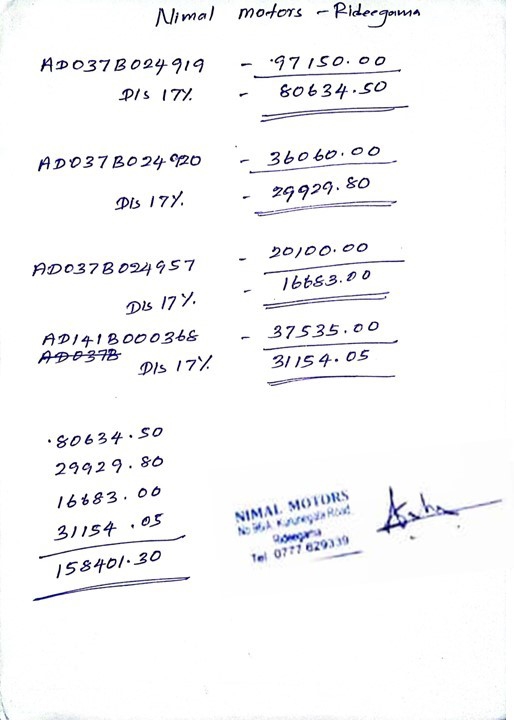 Nimal motors - Rideegama
AD037B024919 - 97150.00
Dis 17% - 80634.50
AD037B024920 - 36060.00
Dis 17% - 29929.80
AD037B024957 - 20100.00
Dis 17% - 16683.00
AD141B000368 - 37535.00
AD037B Dis 17% 31154.05
80634.50
29929.80
16683.00
31154.05
158401.30
NIMAL MOTORS
No 96/A, Kurunegala Road,
Rideegama
Tel 0777 629339